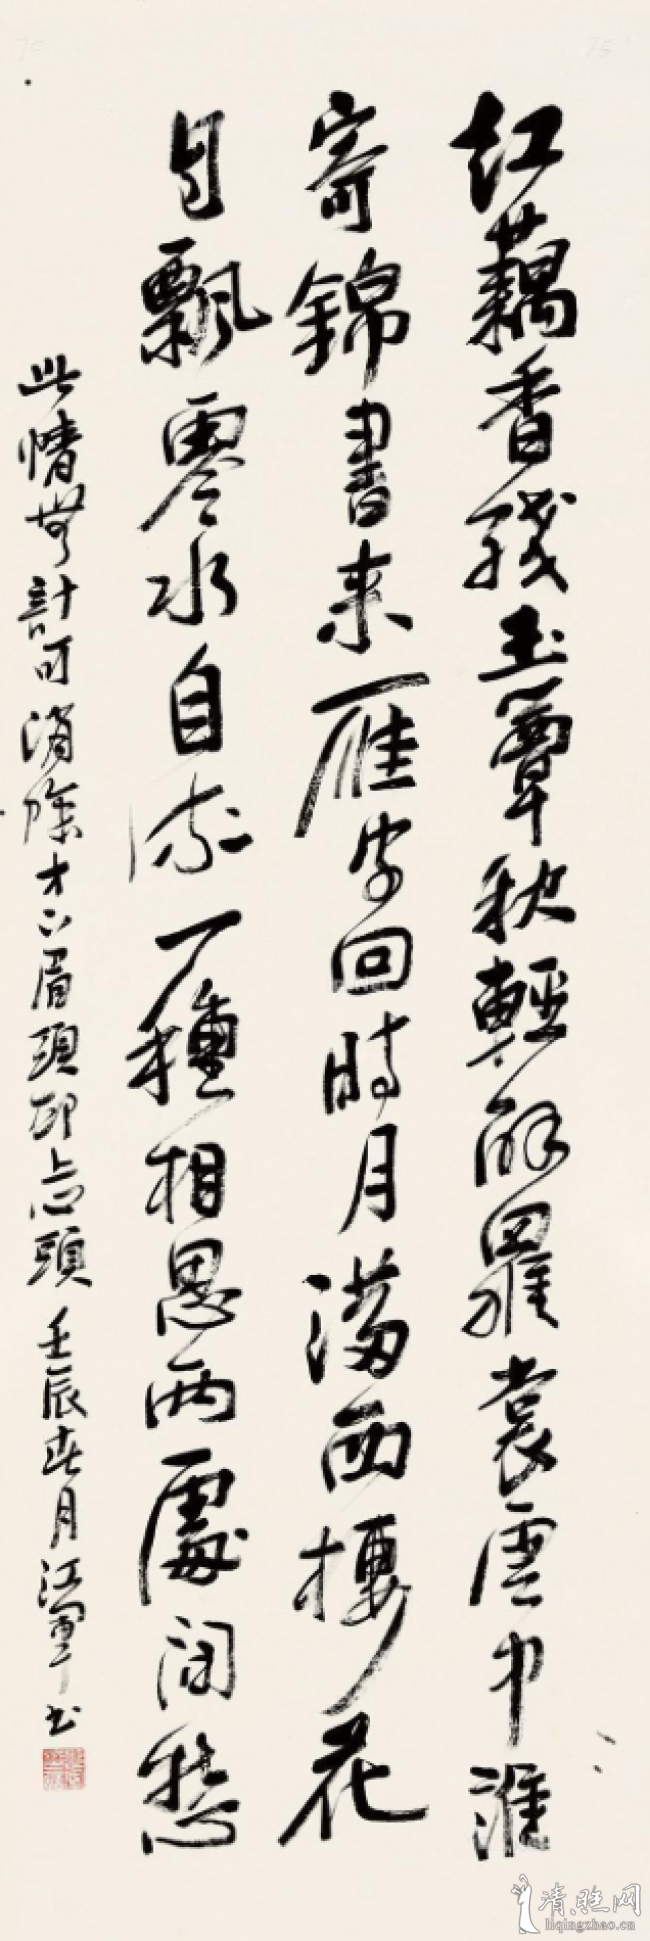 紅藕香殘玉簟秋輕解羅裳雲中誰
寄錦書来雁字回時月滿西樓花
自飄零水自流一種相思兩處閑愁
此情無計可消除才下眉頭却上心頭 壬辰春月江軍书
清照网
liqingzhao.cn
75
75